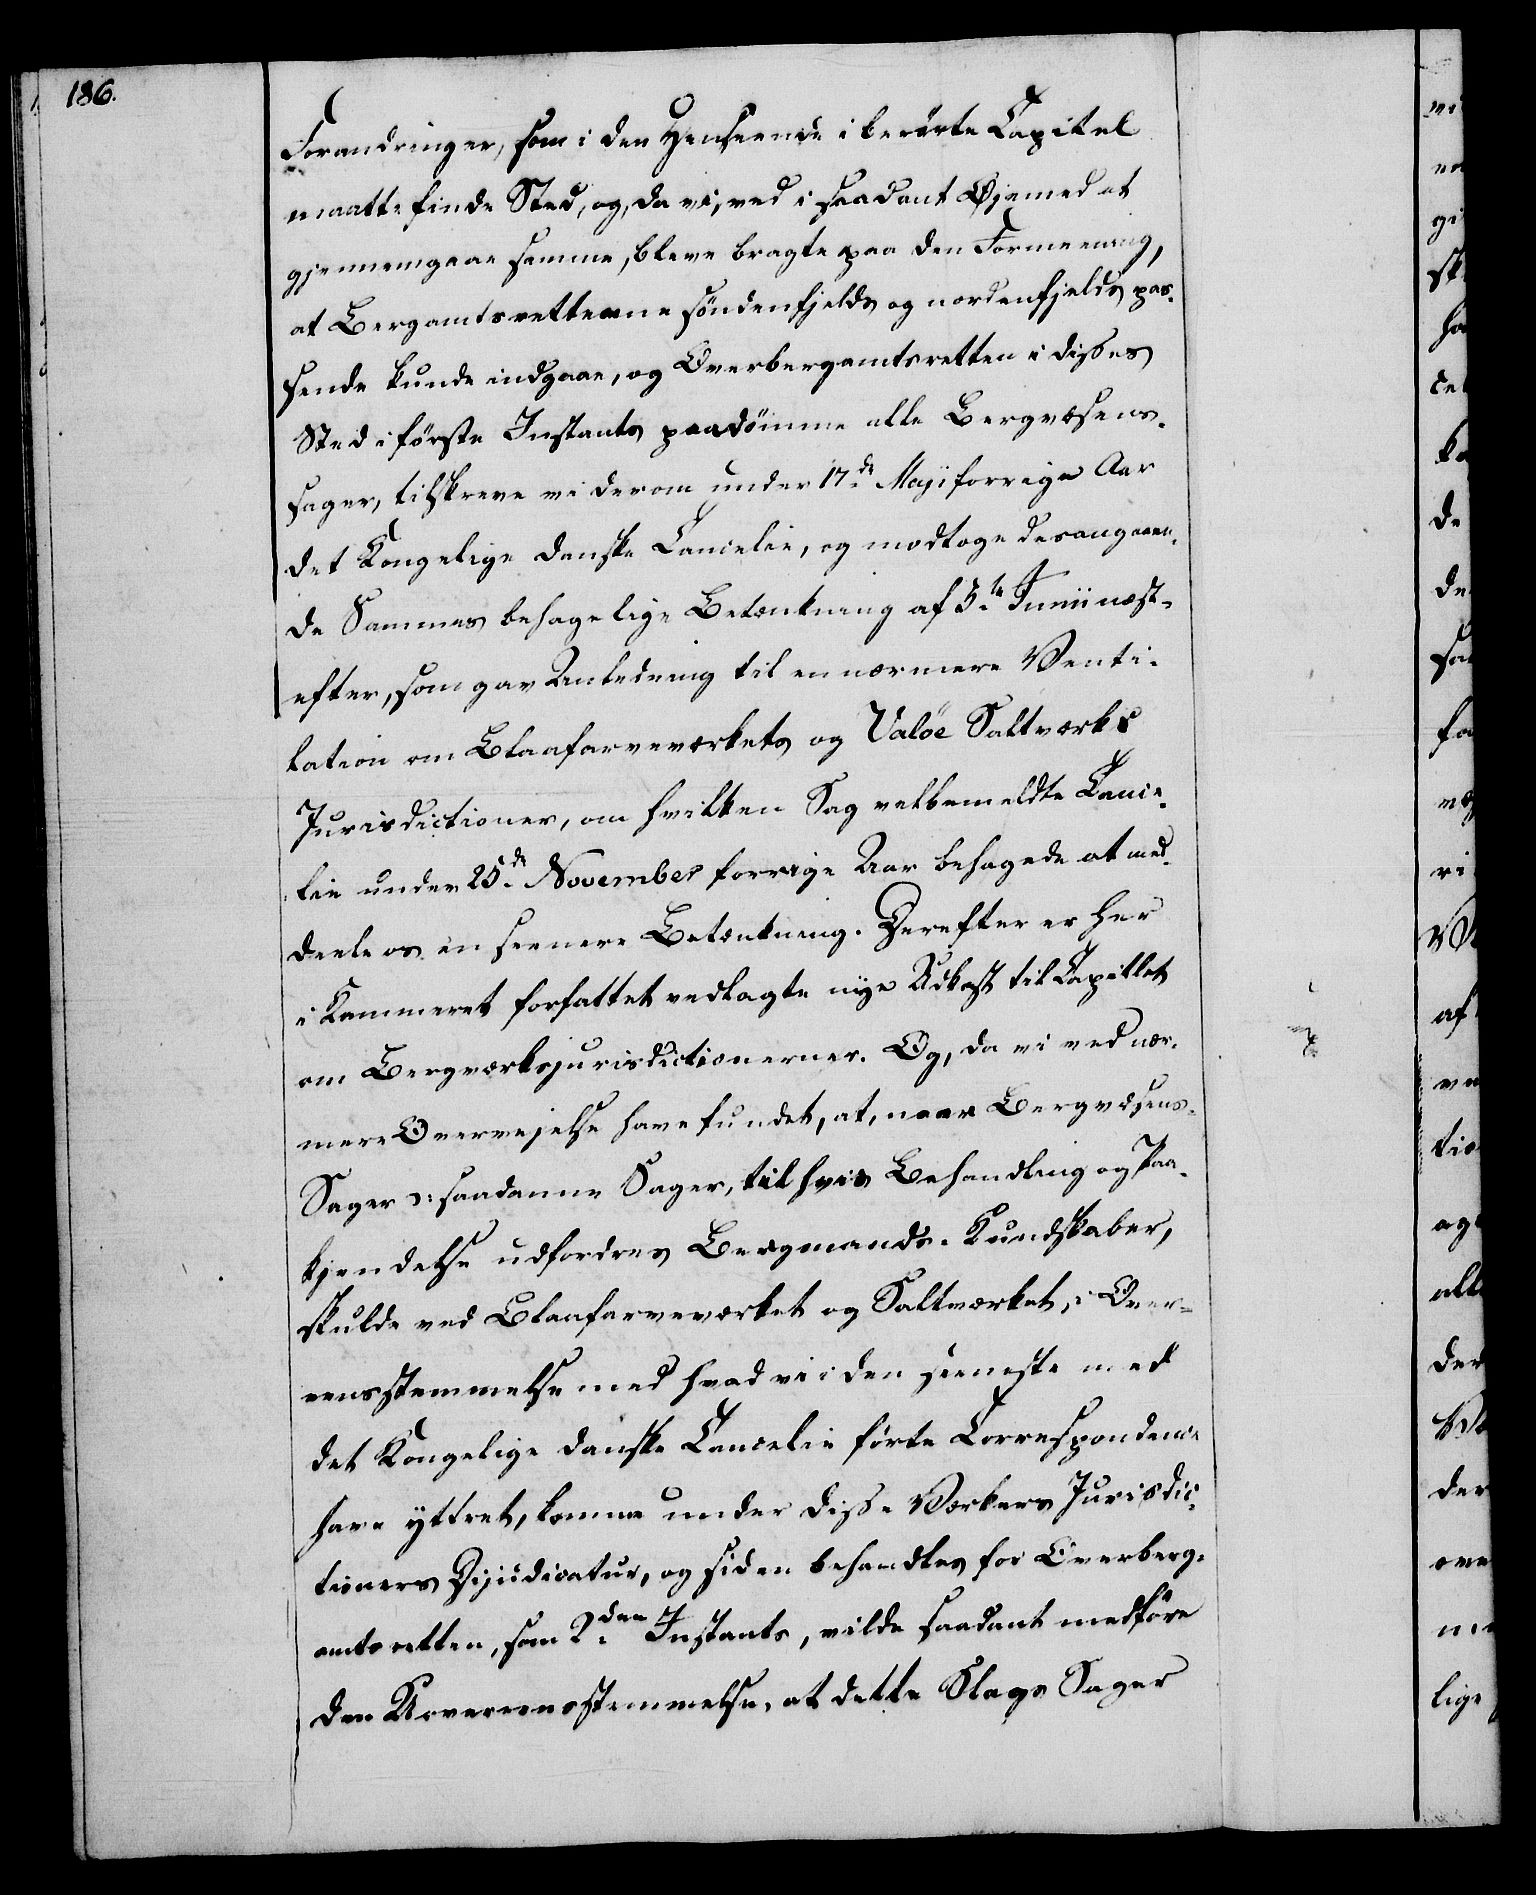 186.
Forandringer, som i den Henseende i berørte Capitel
maatte finde Sted, og, da vi, ved i saadant Øjemed at
gjennemgaae samme, bleve bragte paa den Formeening,
at Bergamtsretterne søndenfjelds og nordenfjelds pas-
sende kunde indgaae, og Overbergamtsretten i disses
Sted i første Instants paadømme alle Bergvæsens-
sager, tilskreve vi derom under 17de Maji forrige Aar
det Kongelige danske Cancelie, og modtoge desangaaen-
de Sammes behagelige Betænkning af 3te Junii næst-
efter, som gav Anledning til en nærmere Venti-
lation om Blaafarveværkets og Valöe Saltværks
Jurisdictioner, om hvilken Sag velbemeldte Cance-
lie under 25de November forrige Aar behagede at med-
deele os en seenere Betænkning. Derefter er her
i Kammeret forfattet vedlagte nye Udkast til Capitlet
om Bergværksjurisdictionerne. Og, da vi ved nær-
mere Overvejelse have fundet, at, naar Bergvæsens-
Sager ɔ: saadanne Sager, til hvis Behandling og Paa-
kjendelse udfordres Bergmands-Kundskaber,
skulde ved Blaafarveværket og Saltværket, i Over-
eensstemmelse med hvad vi i den seeneste med
det Kongelige danske Cancelie førte Correspondence
have yttret, komme under disse Værkers Jurisdic-
tioners Dijudicatur, og siden behandles for Overberg-
amtsretten, som 2den Instants, vilde saadant medføre
den Uovereensstemmelse, at dette Slags Sager